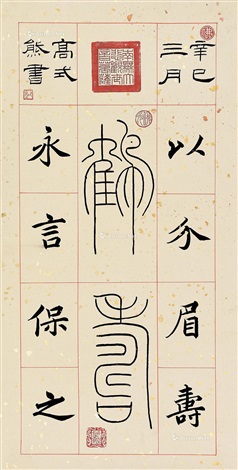 辛巳
三月
以介眉壽
鶴壽
永言保之
高式
熊書